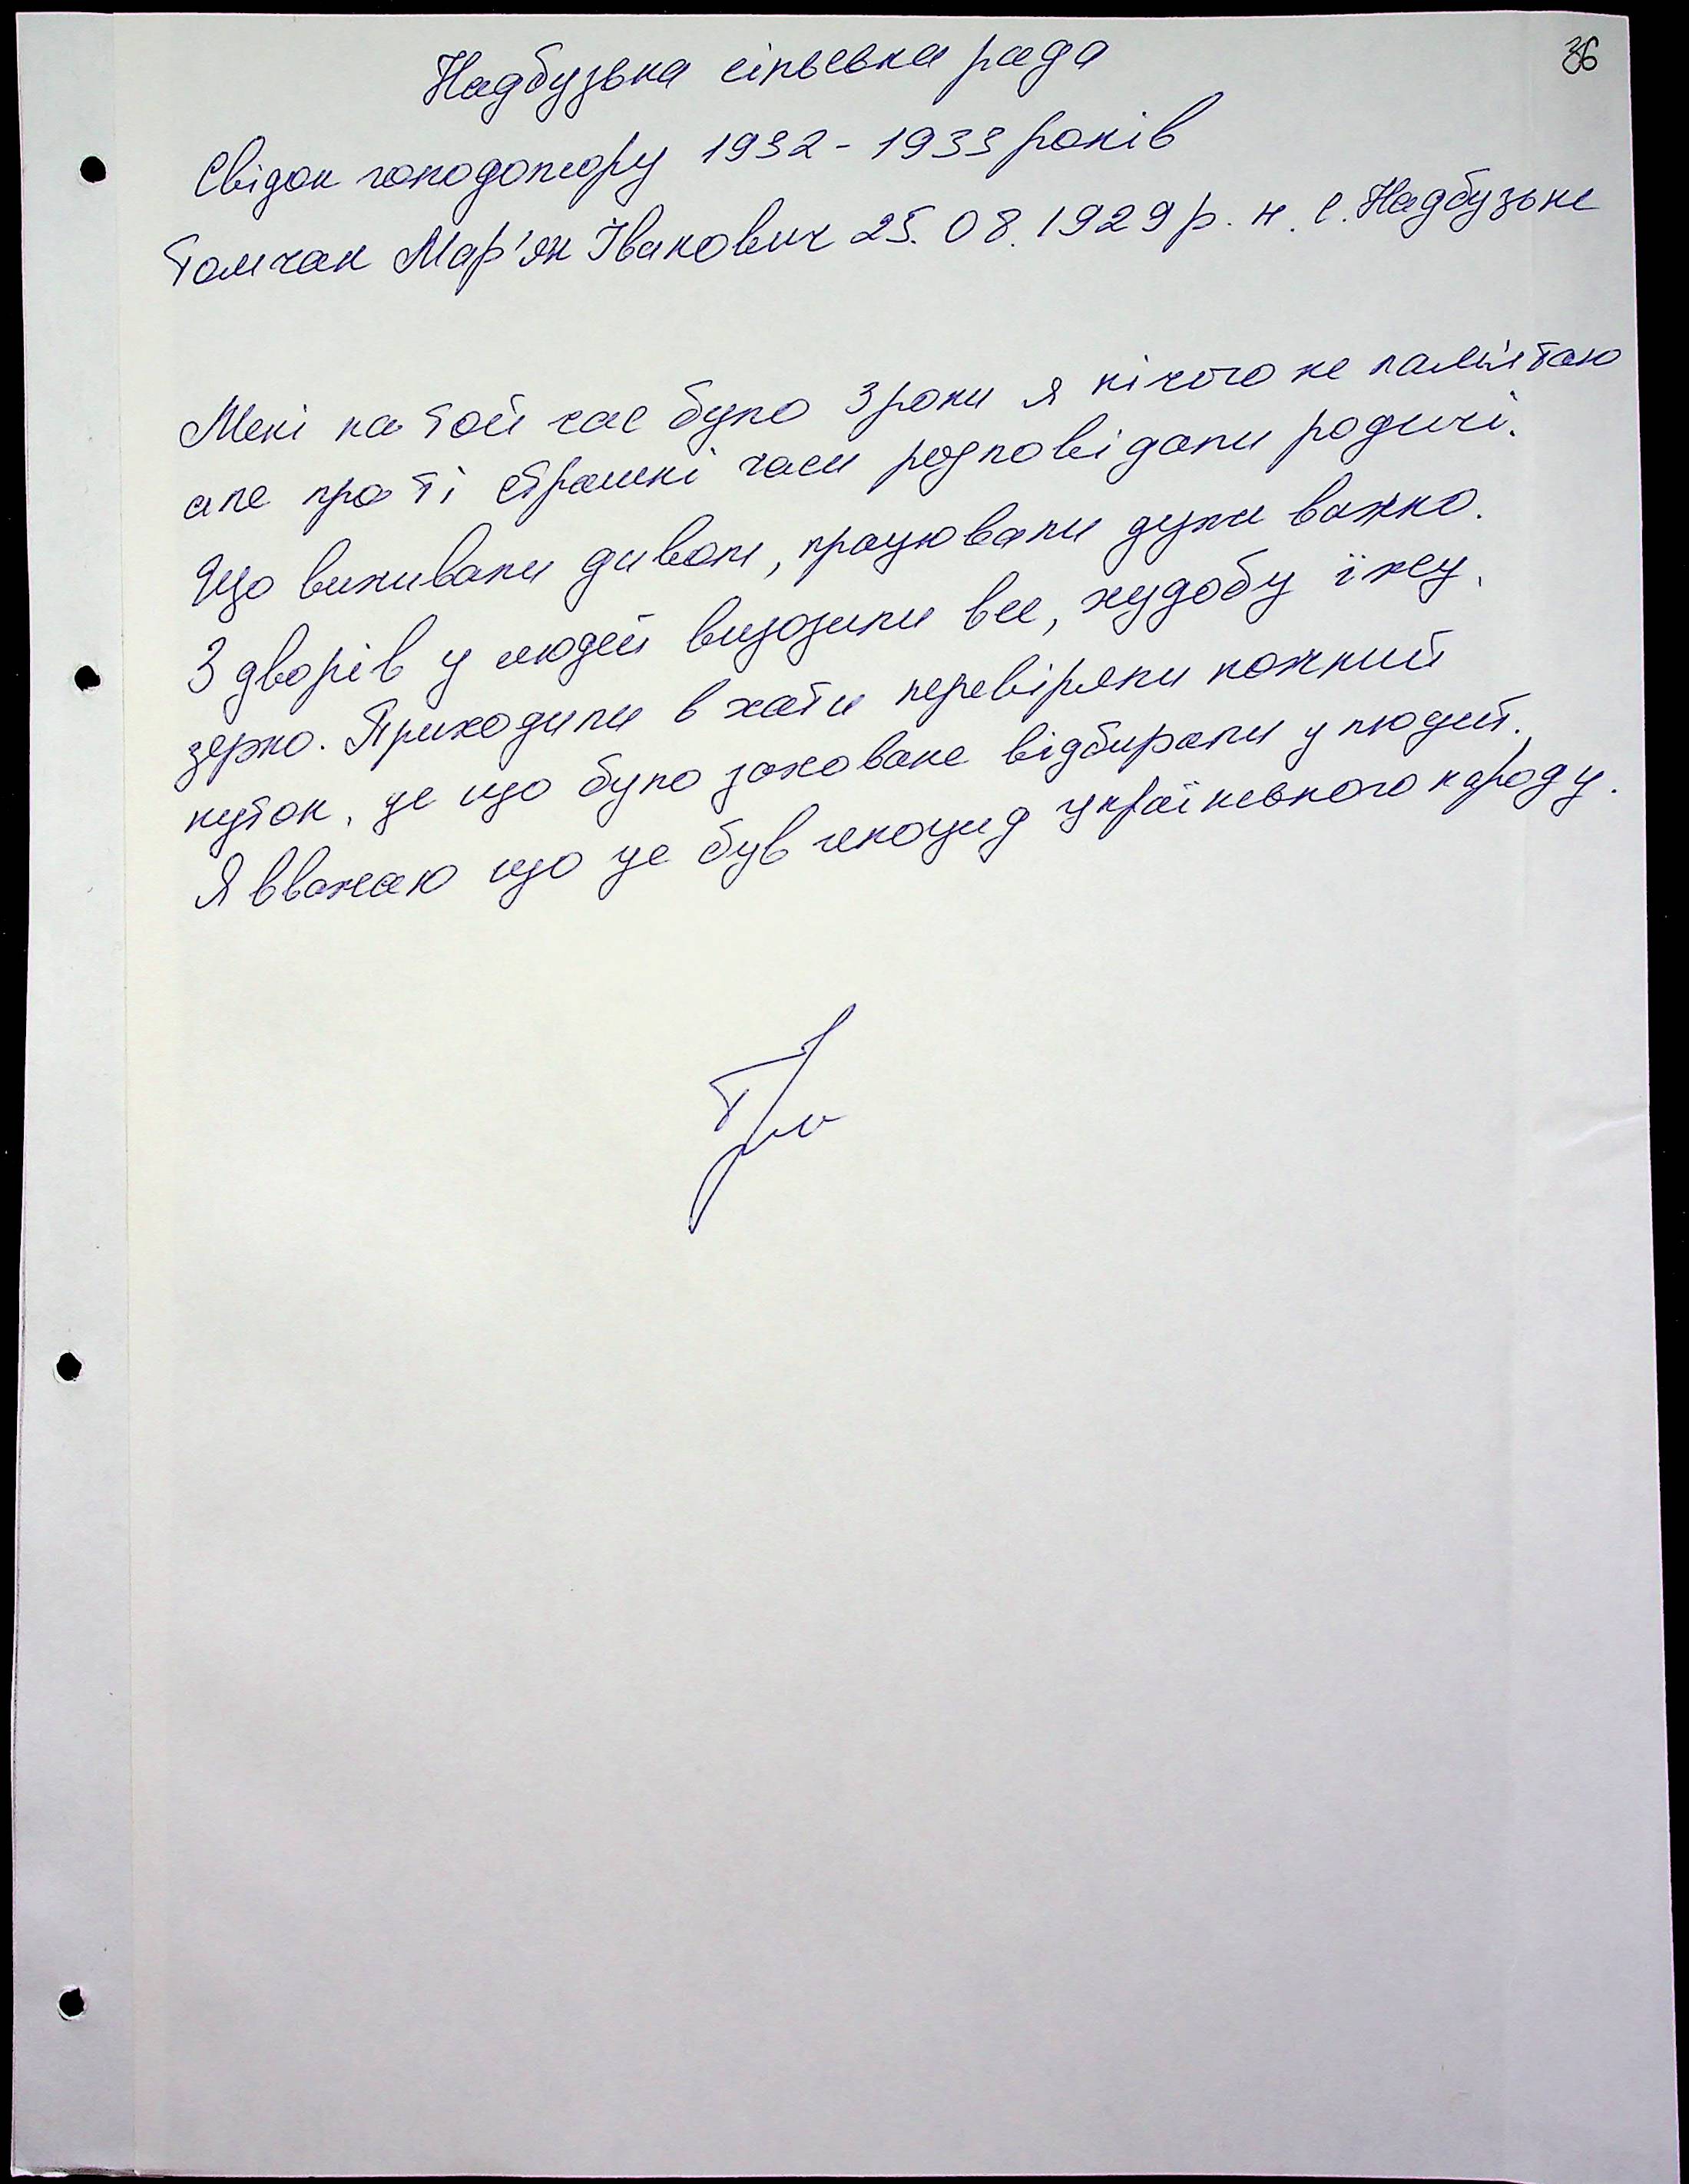 36
Надбузька сільська рада
Свідок голодомору 1932 - 1933 років
Томчак Мар'ян Іванович 25.08.1929 р. н. с. Надбузьке
Мені на той час було 3 роки я нічого не пам'ятаю
але про ті страшні часи розповідали родичі.
Що виживали дивом, працювали дуже важко.
З дворів у людей вивозили все, худобу їжу,
зерно. Приходили в хати перевіряли кожний
куток, це що було заховане відбирали у людей.
Я вважаю що це був геноцид українського народу.